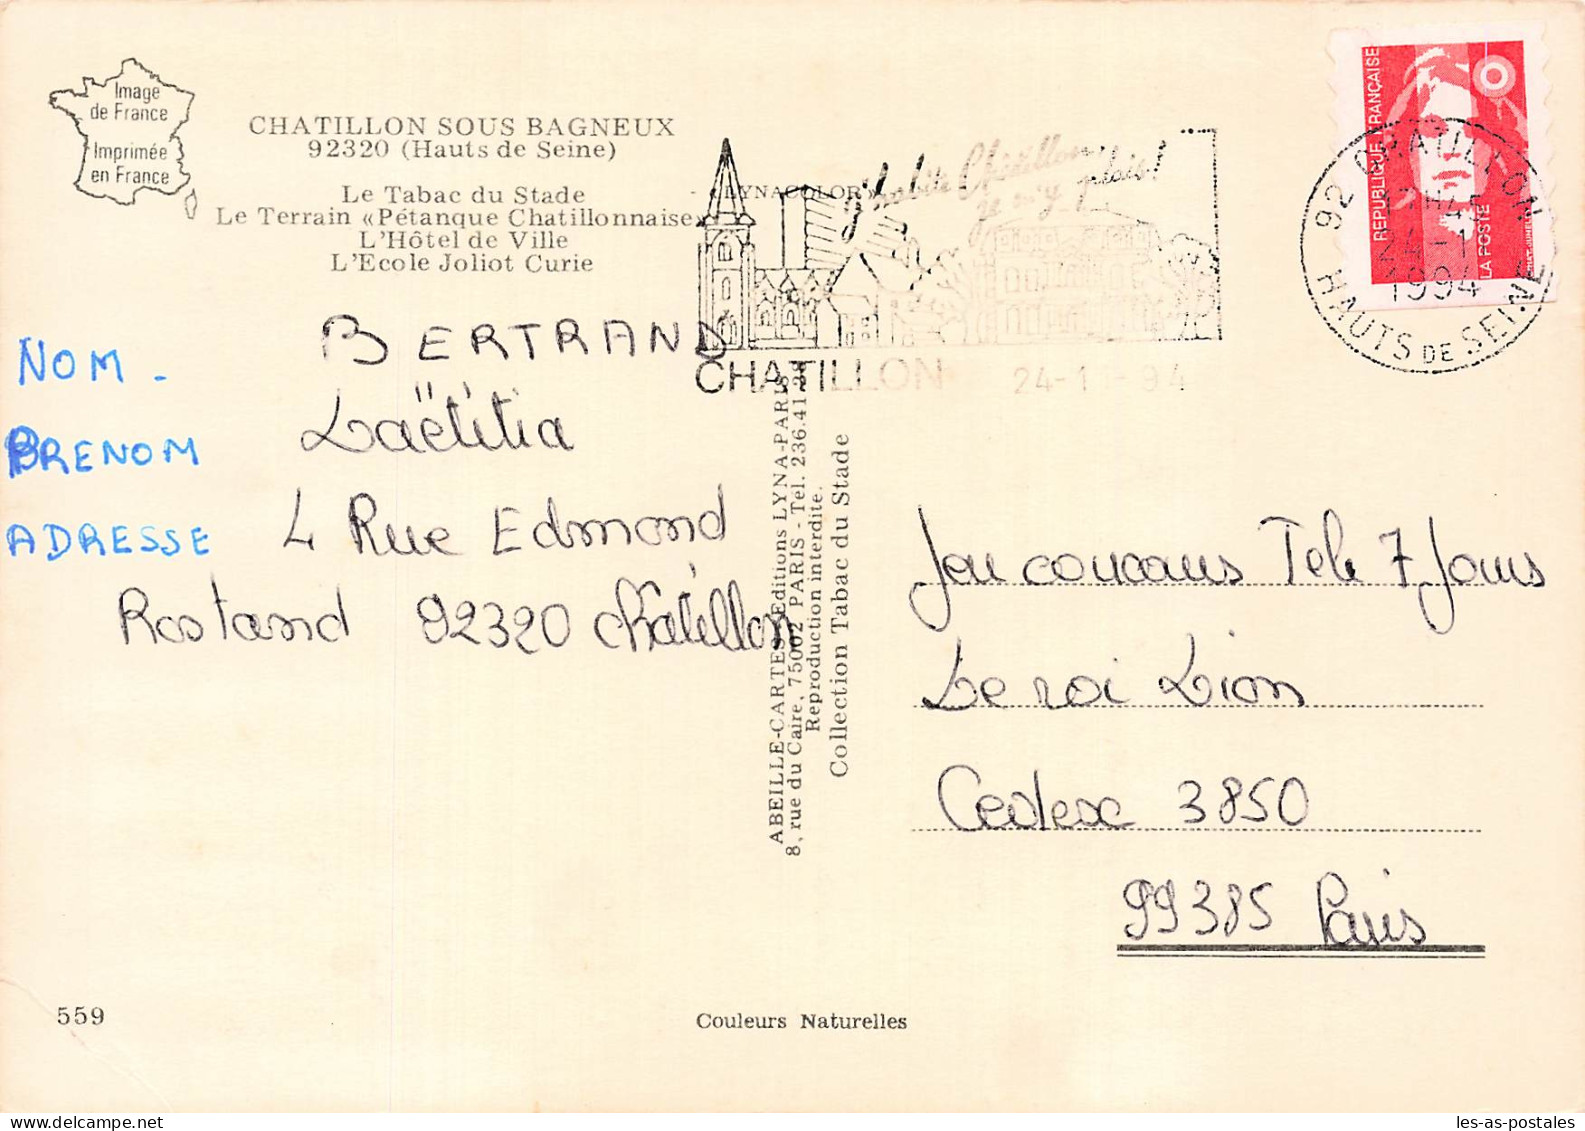 Image
de France
Imprimée
en France
CHATILLON SOUS BAGNEUX
92320 (Hauts de Seine)
Le Tabac du Stade
Le Terrain «Pétanque Chatillonnaise»
L'Hôtel de Ville
L'Ecole Joliot Curie
«LYNACOLOR»
j'habite Châtillon,
je m'y plais!
CHATILLON
24-11-94
RÉPUBLIQUE FRANÇAISE
LA POSTE
92 CHATILLON
24-1
1994
HAUTS DE SEINE
NOM - BERTRAND
PRENOM Laëtitia
ADRESSE 4 Rue Edmond
Rostand 92320 Châtillon
ABEILLE-CARTES Editions LYNA-PARIS
8, rue du Caire, 75002 PARIS - Tel. 236.41.39
Reproduction interdite.
Collection Tabac du Stade
Jeu concours Tele 7 Jours
Le roi Lion
Cedex 3850
99385 Paris
559
Couleurs Naturelles
les-as-postales.com